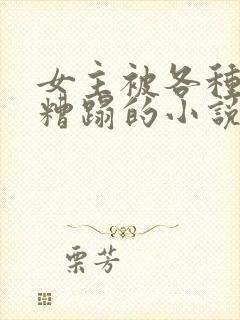 女主被各种
糟蹋的小説
栗芳